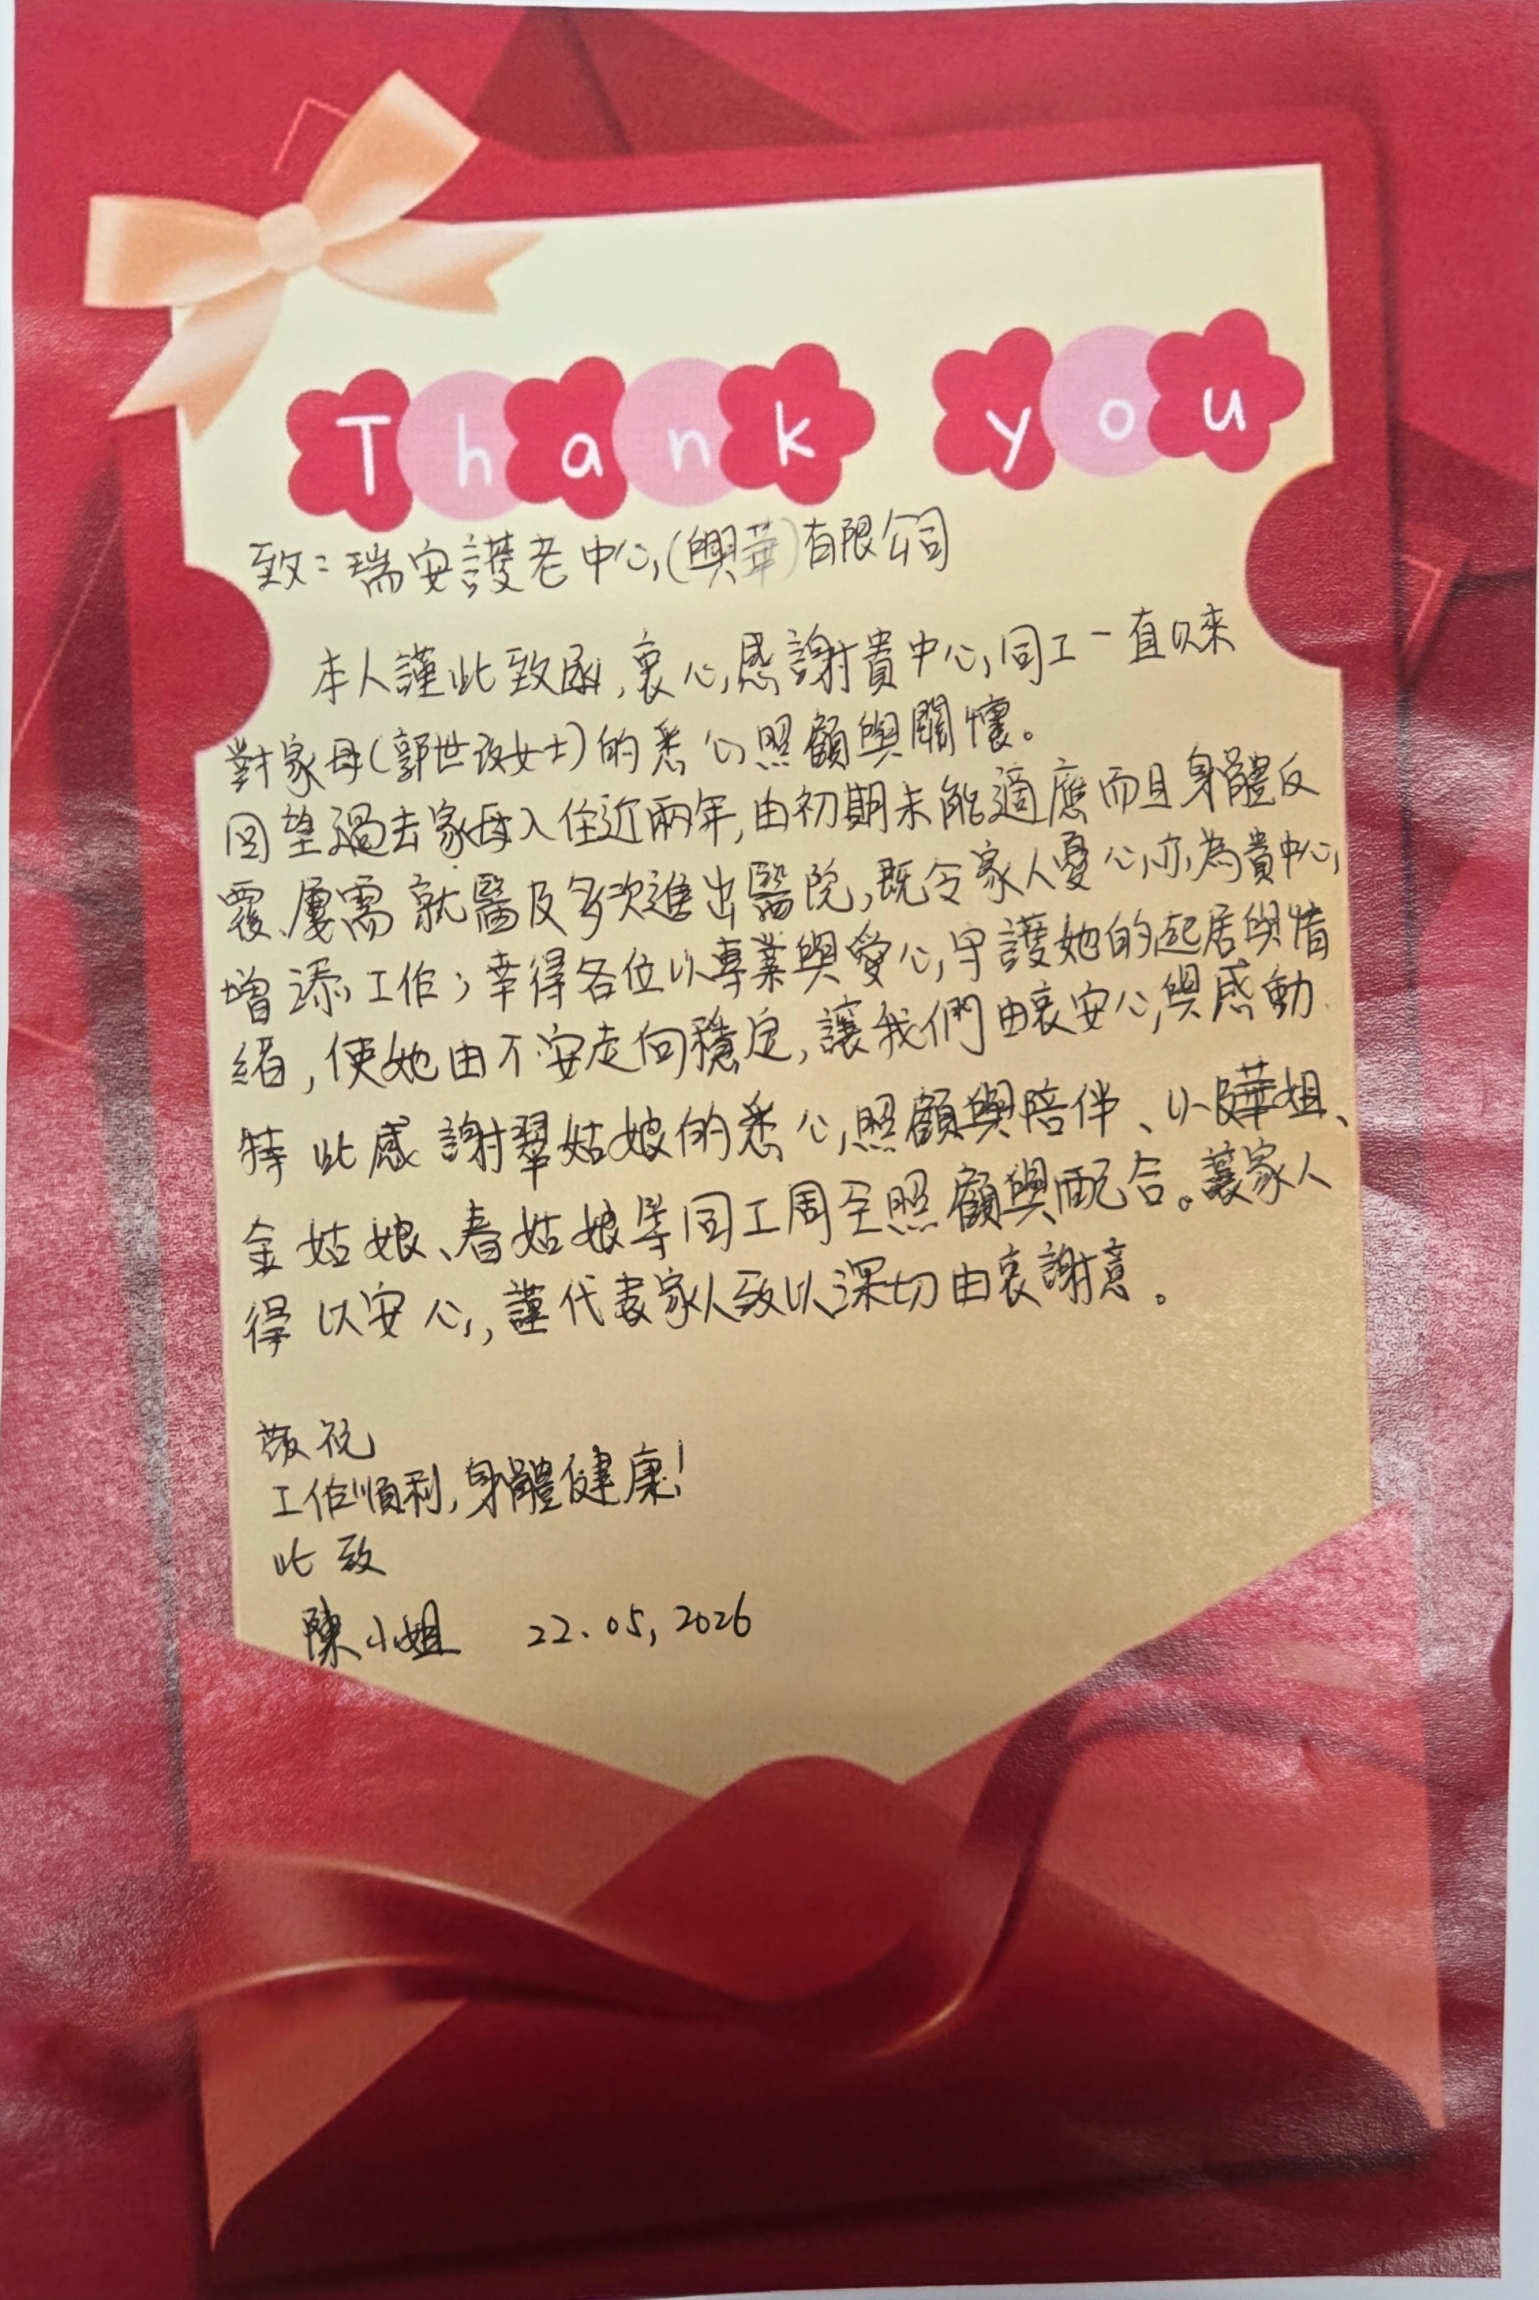 Thank you
致：瑞安護老中心(興華)有限公司
本人謹此致函，衷心感謝貴中心同工一直以來
對家母(郭世女士)的悉心照顧與關懷。
回望過去家母入住近兩年，由初期未能適應而且身體反
覆、屢需就醫及多次進出醫院，既令家人憂心，亦為貴中心
增添工作；幸得各位以專業與愛心，守護她的起居與情
緒，使她由不安走向穩定，讓我們由衷安心與感動.
特此感謝翠姑娘的悉心照顧與陪伴、小曄姐、
金姑娘、春姑娘等同工周全照顧與配合。讓家人
得以安心，謹代表家人致以深切由衷謝意。
敬祝
工作順利，身體健康！
此致
陳小姐 22.05,2026